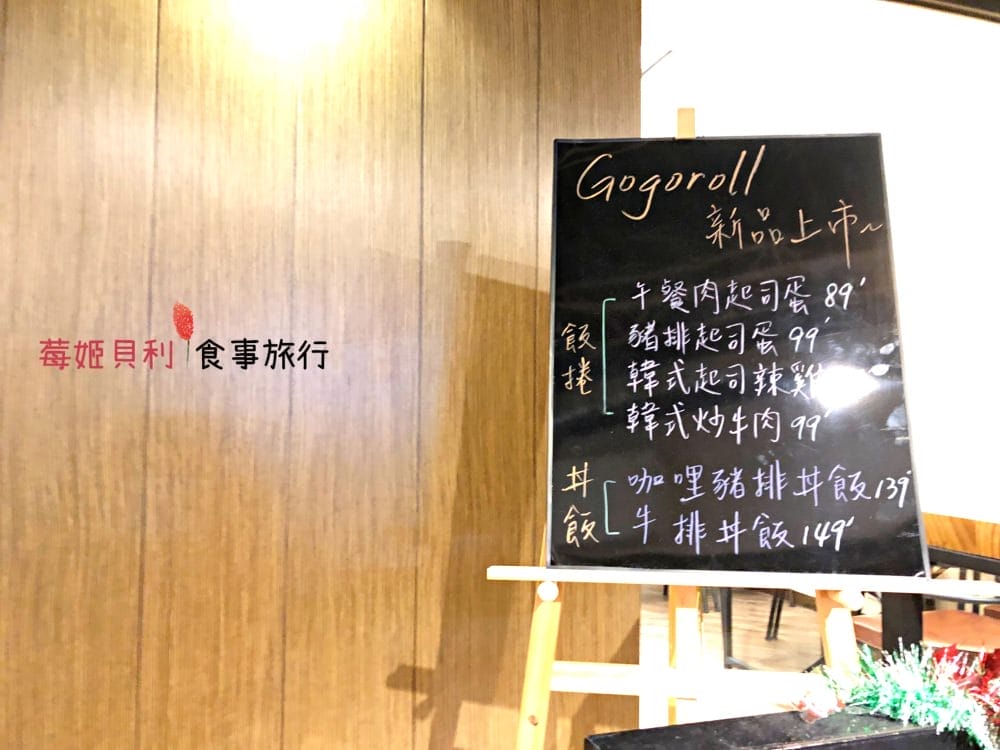 莓姬貝利 食事旅行
Gogoroll
新品上市~
飯捲
午餐肉起司蛋 89'
豬排起司蛋 99'
韓式起司辣雞
韓式炒牛肉 99'
丼飯
咖哩豬排丼飯 139'
牛排丼飯 149'